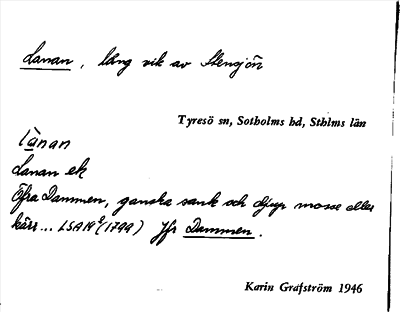 Lanan, lång vik av Stensjön
Tyresö sn, Sotholms hd, Sthlms län
lànan
Lanan ek
Öfra Dammen, ganska sank och djup mosse eller
kärr... LSA (1799) Jfr Dammen.
Karin Grafström 1946